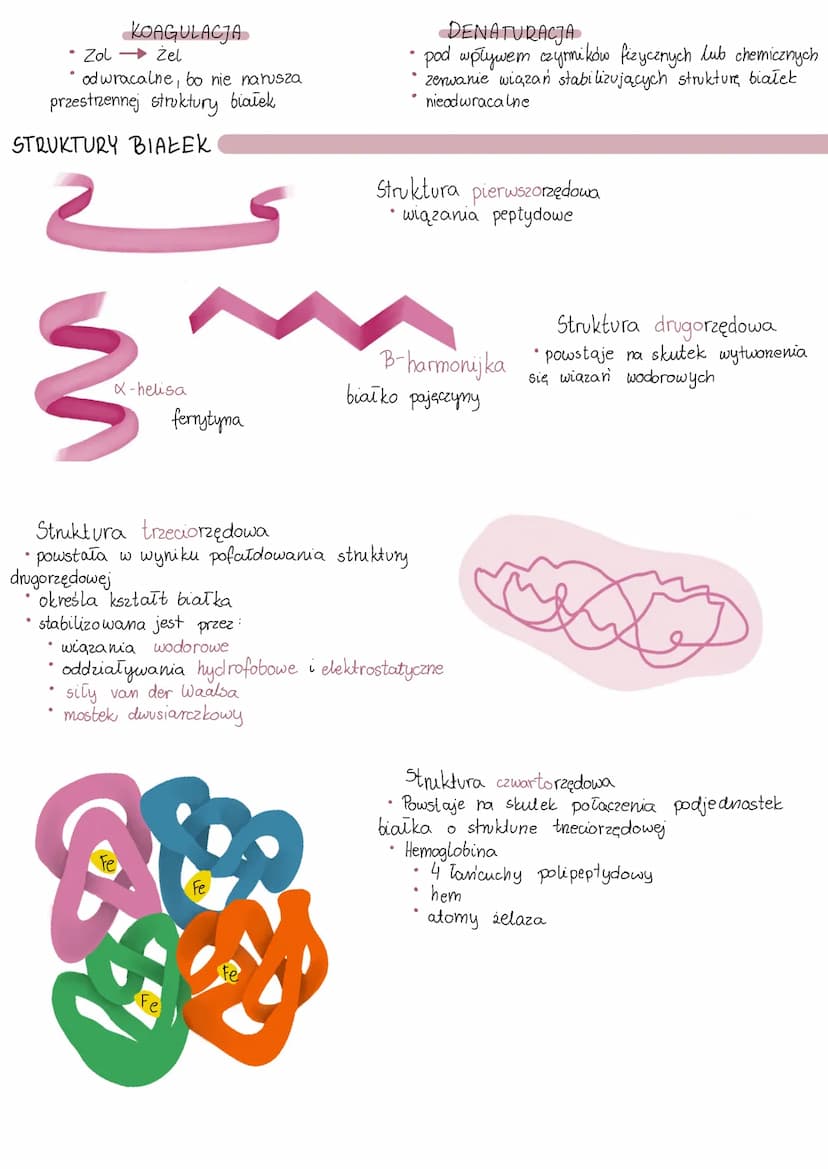 KOAGULACJA
• Zol → Żel
• odwracalne, bo nie narusza
przestrzennej struktury białek
DENATURACJA
• pod wpływem czynników fizycznych lub chemicznych
• zerwanie wiązań stabilizujących strukturę białek
• nieodwracalne
STRUKTURY BIAŁEK
Struktura pierwszorzędowa
• wiązania peptydowe
α-helisa
ferrytyna
B-harmonijka
białko pajęczyny
Struktura drugorzędowa
• powstaje na skutek wytworzenia
się wiązań wodorowych
Struktura trzeciorzędowa
• powstała w wyniku pofałdowania struktury
drugorzędowej
• określa kształt białka
• stabilizowana jest przez:
• wiązania wodorowe
• oddziaływania hydrofobowe i elektrostatyczne
• siły van der Waalsa
• mostek dwusiarczkowy
Struktura czwartorzędowa
• Powstaje na skutek połączenia podjednostek
białka o strukturze trzeciorzędowej
• Hemoglobina
• 4 łańcuchy polipeptydowy
• hem
• atomy żelaza
Fe
Fe
Fe
Fe